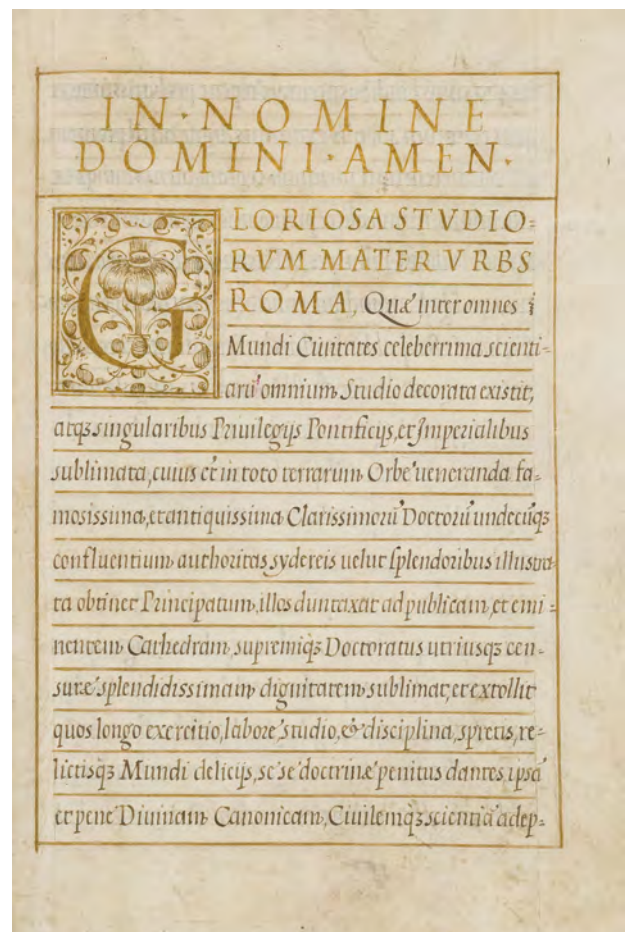 IN · NOMINE
DOMINI · AMEN ·
GLORIOSA STVDIO=
RVM MATER VRBS
ROMA, Quæ inter omnes
Mundi Ciuitates celeberrima scienti=
arū omnium Studio decorata existit,
atqꝫ singularibus Priuilegijs Pontificijs, et Imperialibus
sublimata, cuius et in toto terrarum Orbe ueneranda fa=
mosissima, et antiquissima Clarissimorū Doctorū undecūqꝫ
confluentium authoritas sydereis uelut splendoribus illustra
ta obtinet Principatum, illos duntaxat ad publicam, et emi=
nentem Cathedram, supremiqꝫ Doctoratus utriusqꝫ cen=
suræ splendidissimam dignitatem sublimat, et extollit
quos longo exercitio, labore studio, & disciplina, spretis, re=
lictisqꝫ Mundi delicijs, se se doctrinæ penitus dantes, ipsā
et pene Diuinam Canonicam, Ciuilemqꝫ scientiā adep=